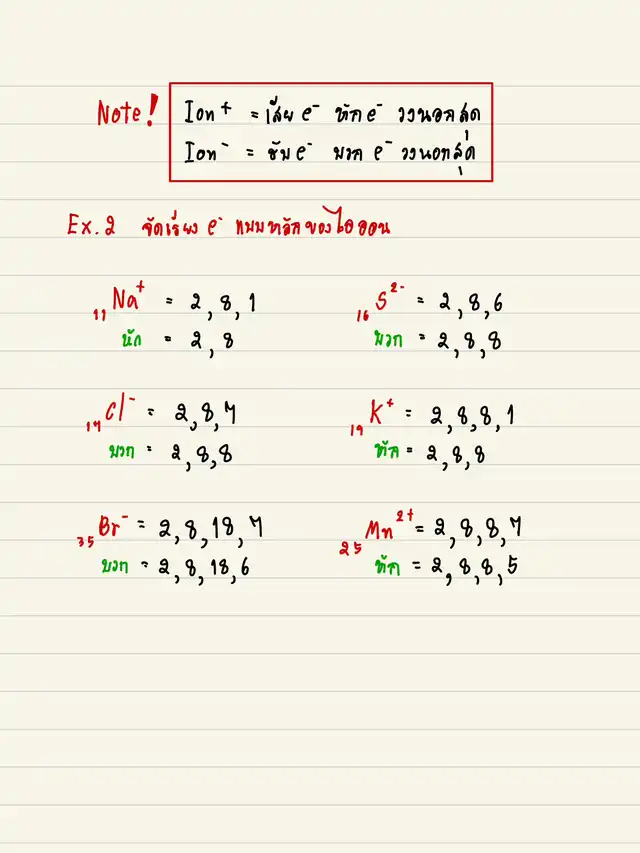 Note! Ion⁺ = เสีย e⁻ หัก e⁻ วงนอกสุด
Ion⁻ = รับ e⁻ บวก e⁻ วงนอกสุด
Ex. 2 จัดเรียง e⁻ แบบหลักของไอออน
₁₁Na⁺ = 2, 8, 1
หัก = 2, 8
₁₆S²⁻ = 2, 8, 6
บวก = 2, 8, 8
₁₇Cl⁻ = 2, 8, 7
บวก = 2, 8, 8
₁₉K⁺ = 2, 8, 8, 1
หัก = 2, 8, 8
₃₅Br⁻ = 2, 8, 18, 7
บวก = 2, 8, 18, 6
₂₅Mn²⁺ = 2, 8, 8, 7
หัก = 2, 8, 8, 5